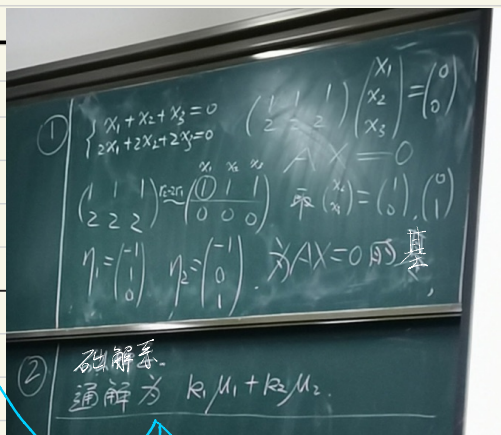 ① { x₁+x₂+x₃=0
2x₁+2x₂+2x₃=0
(1 1 1
2 2 2) (x₁
x₂
x₃) = (0
0)
AX=0
(1 1 1
2 2 2) r₂-2r₁ ~
x₁ x₂ x₃
(1 1 1
0 0 0)
取 (x₂
x₃) = (1
0), (0
1)
η₁=(-1
1
0) η₂=(-1
0
1). 为AX=0的基
② 础解系.
通解为 k₁μ₁+k₂μ₂.